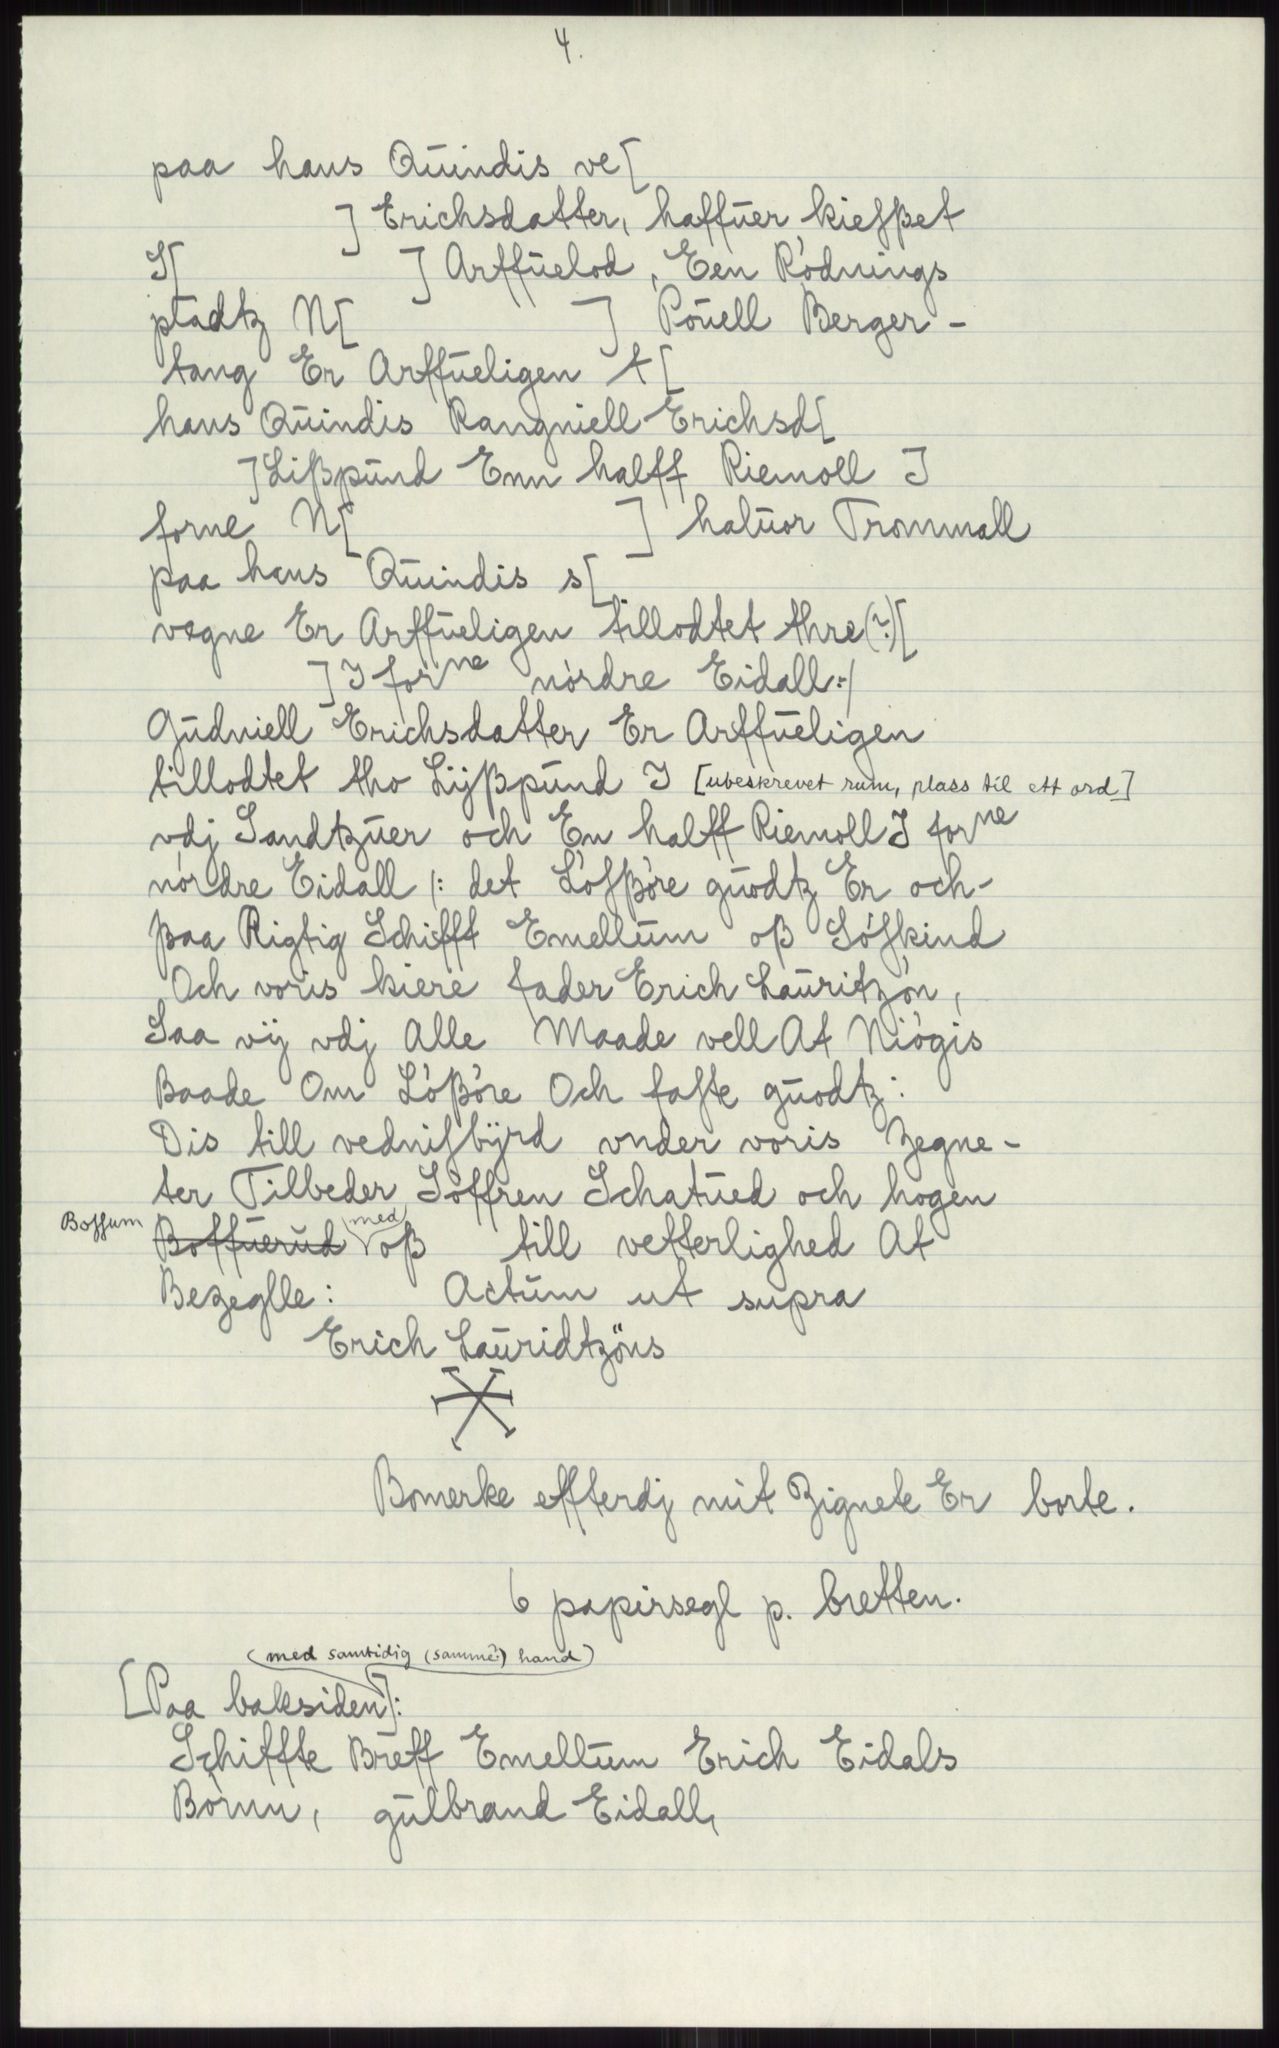 4.
paa hans Quindis ve[
] Erichsdatter, haffuer kiesßet
I[ ] Arffuelod, Een Rödnings
pladtz N[ ] Pouell Berger-
tang Er Arffueligen t[
hans Quindis Rangniell Erichsd[
] Lißpund Enn halff Riemoll I
forne N[ ] haluor Trommall
paa hans Quindis s[
vegne Er Arffueligen tillodtet thre(?)[
] I forne nórdre Eidall:/
Gudniell Erichsdatter Er Arffueligen
tillodtet tho Lijßpund I [ubeskrevet rum, plass til ett ord]
vdj Sandtzuer och En halff Riemoll I forne
nórdre Eidall /: det Lósßóre guodtz Er och-
ßaa Rigtig Schifft Emellum oß Sóskind
Och voris kiere fader Erich Lauritzón,
Saa vij vdj Alle Maade vell At Niógis
Baade Om Lóßóre Och faste guodtz:
Dis till vednisbÿrd vnder voris Zegne-
ter Tilbeder Sóffren Schatued och hogen
Bossum Boffuerud med oß till vetterlighed At
Bezeglle: Actum ut supra
Erich Lauridtzöns
Bomerke effterdj mit Zignete Er borte.
6 papirsegl p. bretten.
(med samtidig (samme?) hand)
[Paa baksiden]:
Schiffte Breff Emellum Erich Eidals
Börnn, gulbrand Eidall,